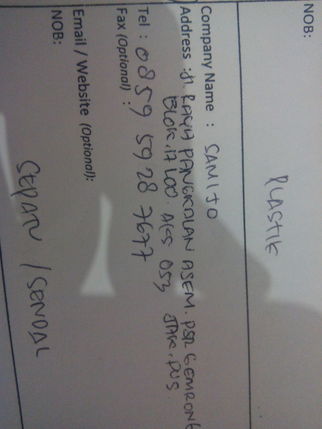 NOB:
PLASTIK
Company Name : SAMIJO
Address : Jl. RAYA PANGKALAN ASEM. PSR GEMRONG
BLOK. A LOO. AKS 053 JAK.PUS.
Tel : 0859 5928 7677
Fax (Optional) :
Email / Website (Optional):
NOB:
SEPATU / SENDAL